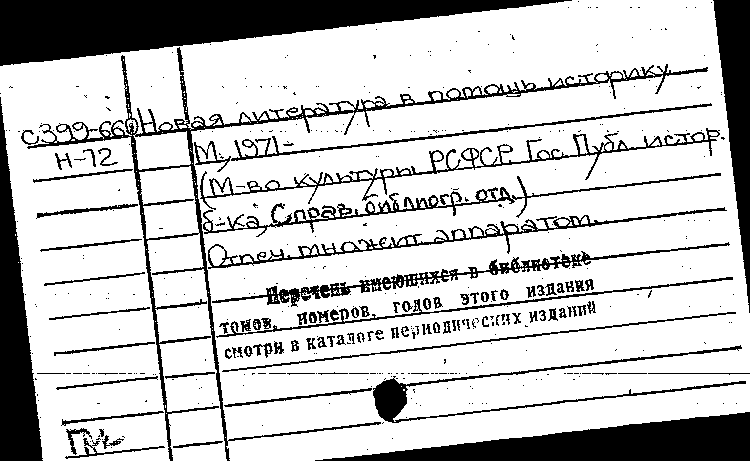 С399-66 Новая литература в помощь историку
Н-72 М., 1971-
(М-во культуры РСФСР. Гос. Публ. истор.
б-ка, Справ. библиогр. отд.).
Отпеч. множит. аппаратом.
Перечень имеющихся в библиотеке
томов, номеров, годов этого издания
смотри в каталоге периодических изданий